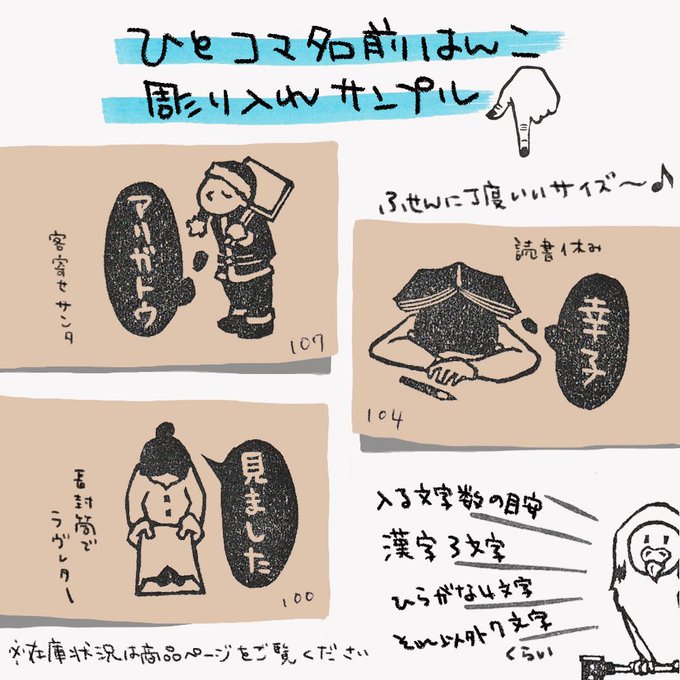 ひとコマ名前はんこ
彫り入れサンプル
ふせんに丁度いいサイズ〜♪
アリガトウ
客寄せサンタ
107
読書休み
幸子
104
見ました
長封筒で
ラヴレター
100
入る文字数の目安
漢字3文字
ひらがな4文字
それ以外7文字
くらい
※在庫状況は商品ページをご覧ください